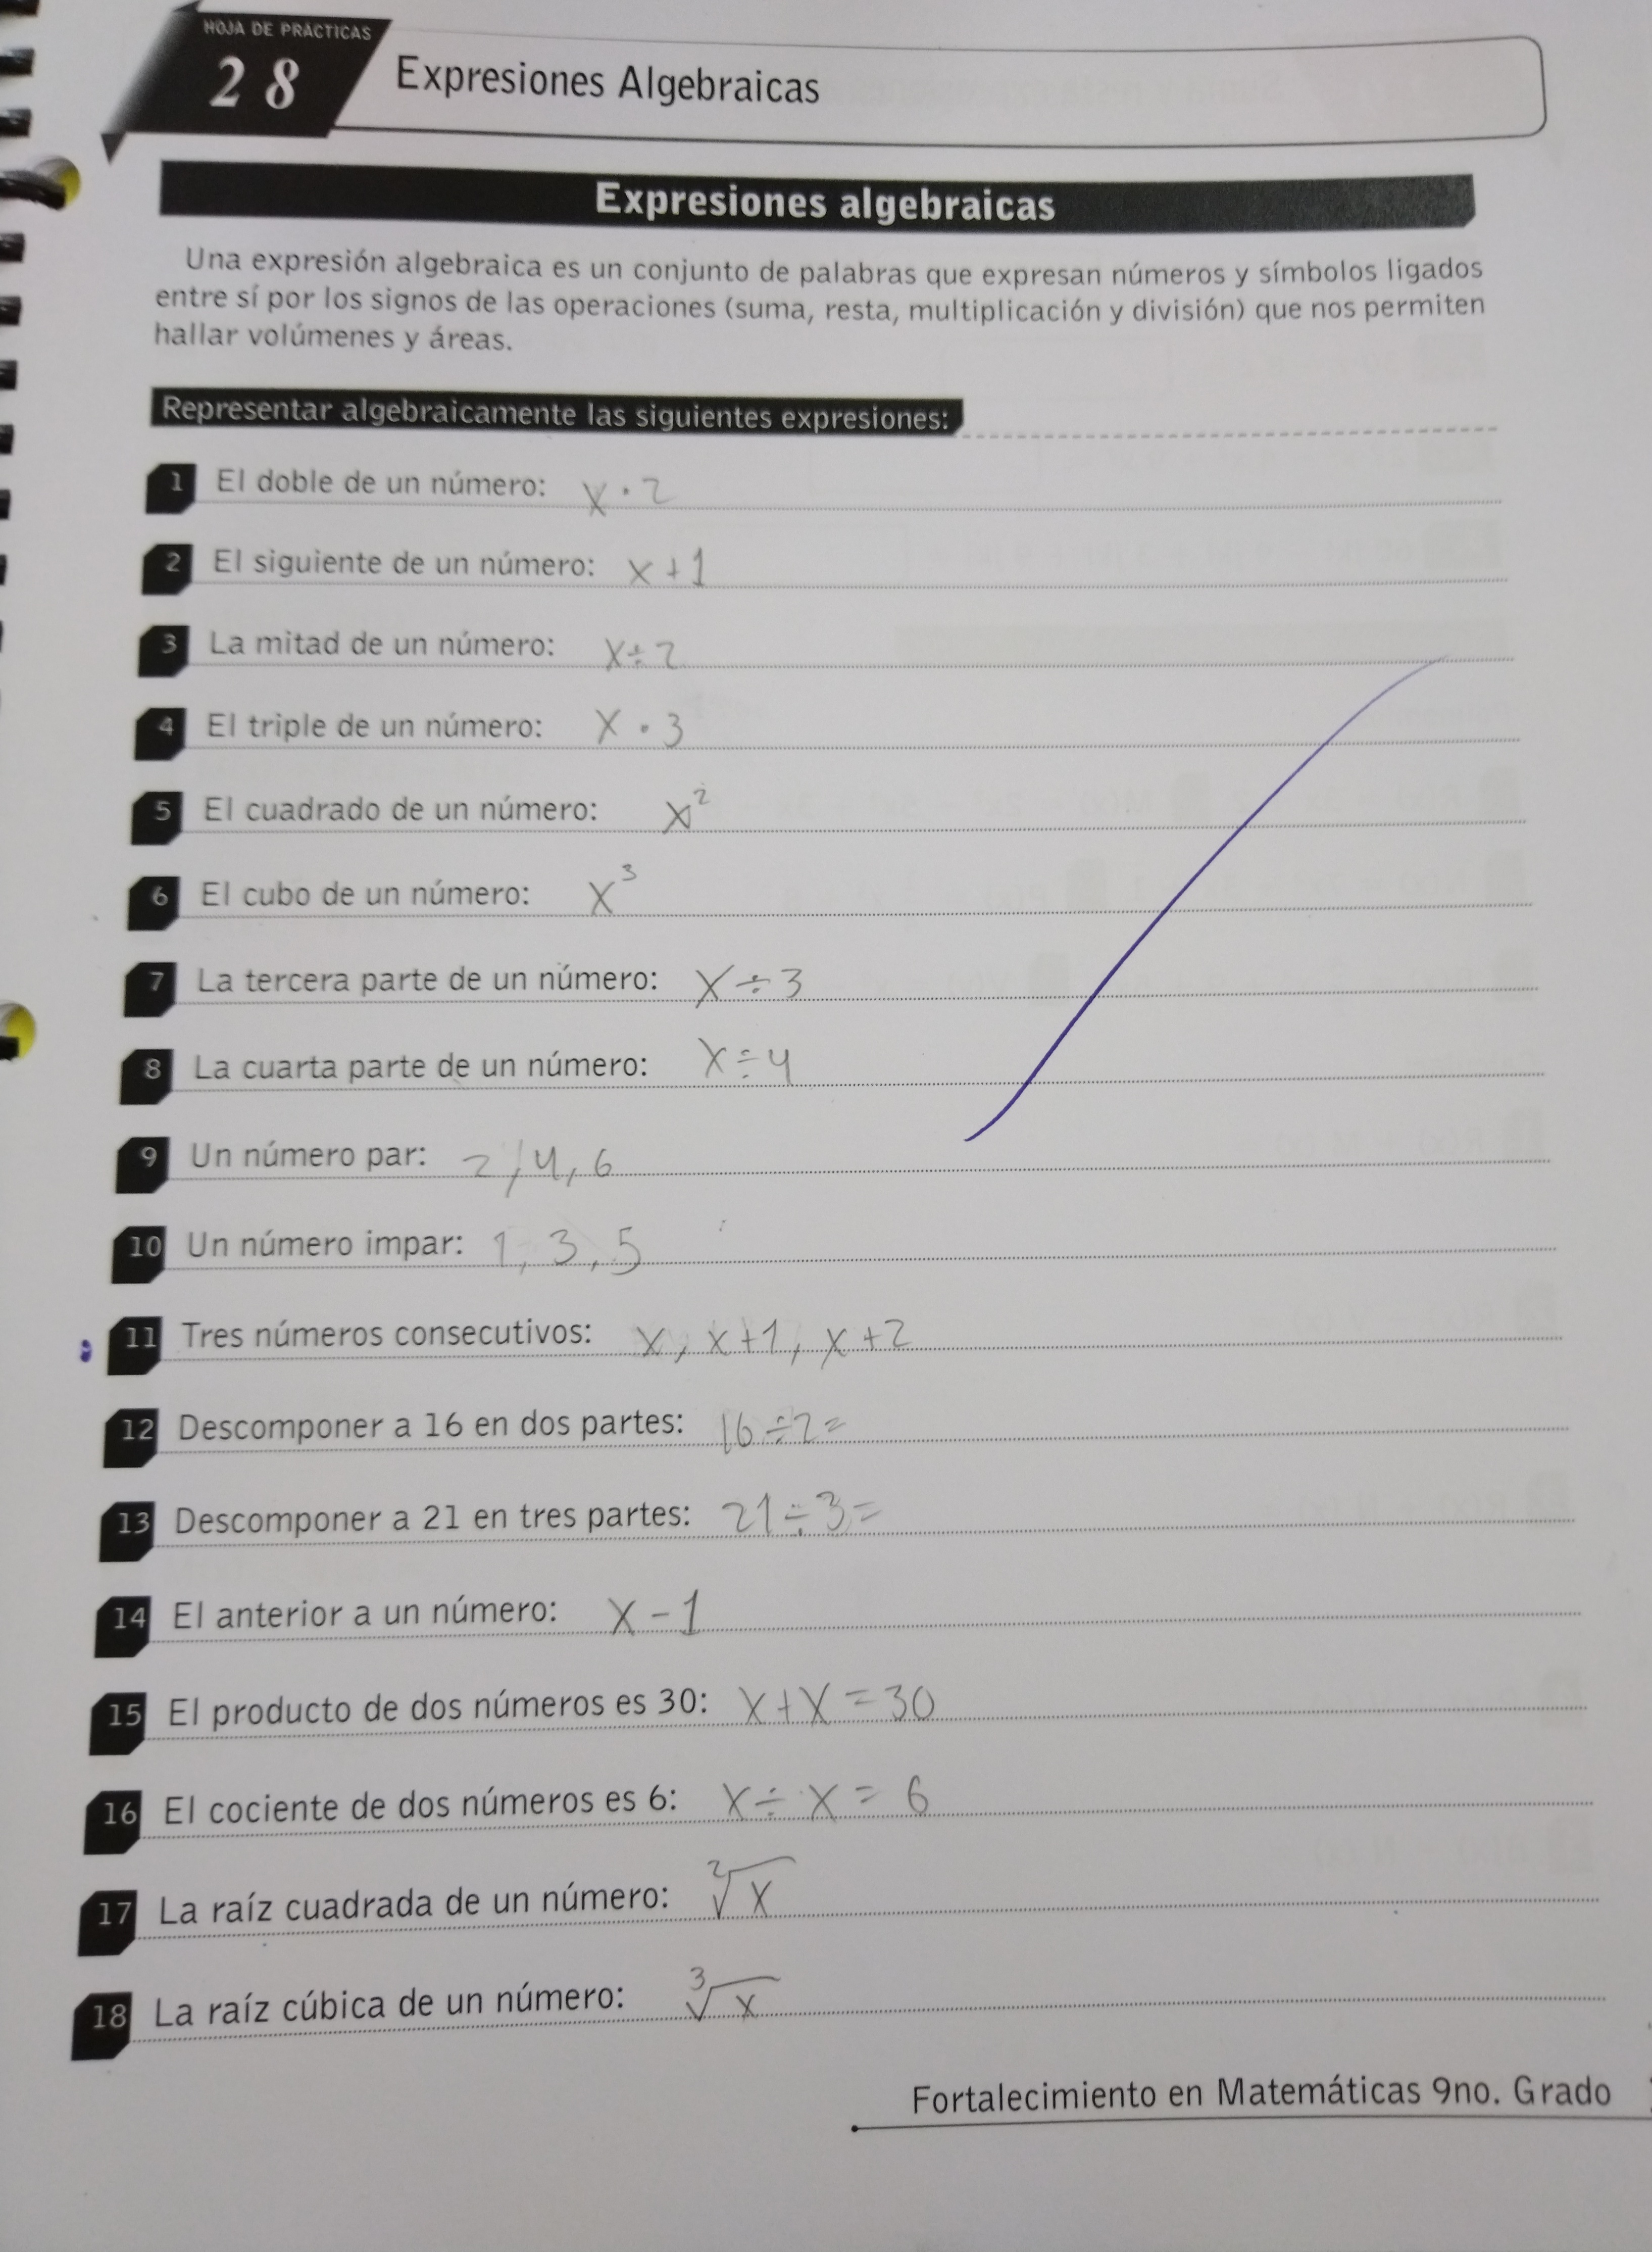 HOJA DE PRÁCTICAS
28
Expresiones Algebraicas
Expresiones algebraicas
Una expresión algebraica es un conjunto de palabras que expresan números y símbolos ligados
entre sí por los signos de las operaciones (suma, resta, multiplicación y división) que nos permiten
hallar volúmenes y áreas.
Representar algebraicamente las siguientes expresiones:
1 El doble de un número: x · 2
2 El siguiente de un número: x + 1
3 La mitad de un número: x ÷ 2
4 El triple de un número: x · 3
5 El cuadrado de un número: x²
6 El cubo de un número: x³
7 La tercera parte de un número: x ÷ 3
8 La cuarta parte de un número: x ÷ 4
9 Un número par: 2, 4, 6
10 Un número impar: 1, 3, 5
11 Tres números consecutivos: x, x+1, x+2
12 Descomponer a 16 en dos partes: 16 ÷ 2 =
13 Descomponer a 21 en tres partes: 21 ÷ 3 =
14 El anterior a un número: x - 1
15 El producto de dos números es 30: x + x = 30
16 El cociente de dos números es 6: x ÷ x = 6
17 La raíz cuadrada de un número: ²√x
18 La raíz cúbica de un número: ³√x
Fortalecimiento en Matemáticas 9no. Grado